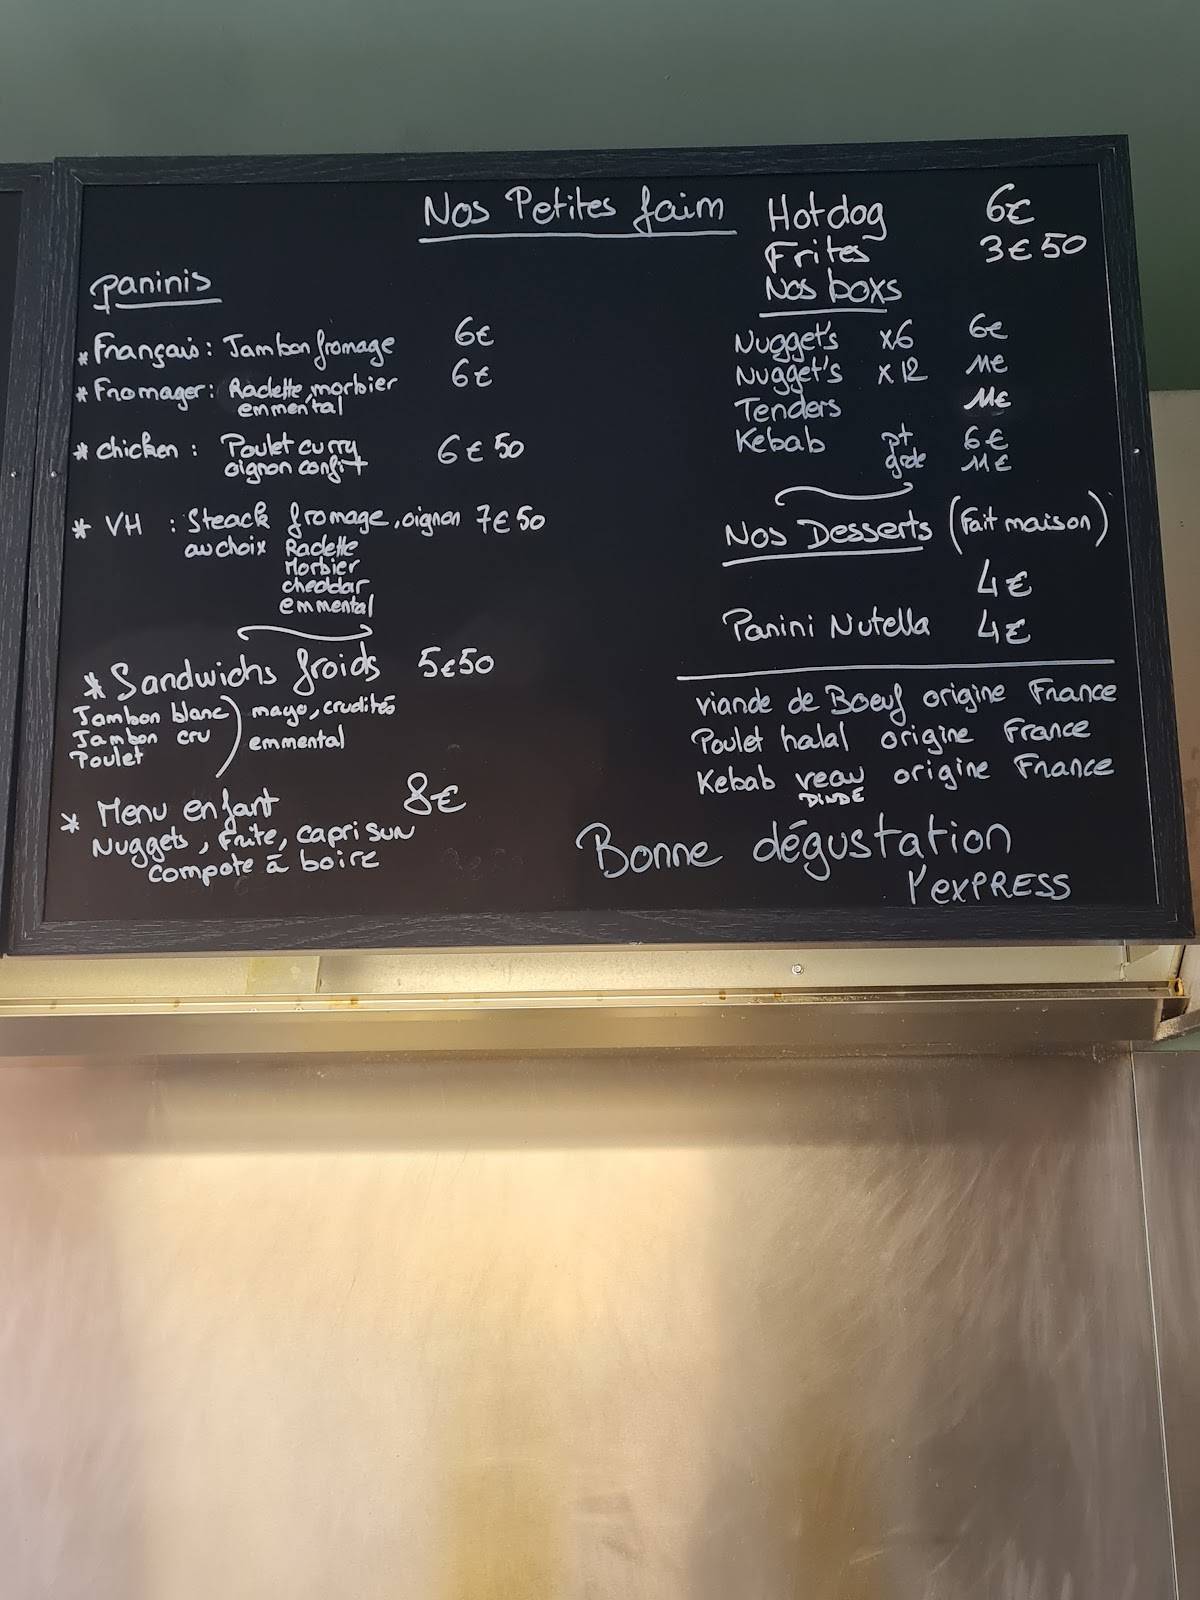 Nos Petites faim
Paninis
* Français : Jambon fromage 6€
* Fromager : Raclette, morbier 6€
emmental
* chicken : Poulet curry 6€50
oignon confit
* VH : Steack fromage, oignon 7€50
au choix Raclette
Morbier
cheddar
emmental
* Sandwichs froids 5€50
Jambon blanc ) mayo, crudités
Jambon cru emmental
Poulet
* Menu enfant 8€
Nuggets, frite, capri sun
compote à boire
Hotdog 6€
Frites 3€50
Nos boxs
Nugget's x6 6€
Nugget's x12 11€
Tenders 11€
Kebab pt 6€
gde 11€
Nos Desserts (fait maison)
4€
Panini Nutella 4€
viande de Boeuf origine France
Poulet halal origine France
Kebab veau origine France
DINDE
Bonne dégustation
l'EXPRESS